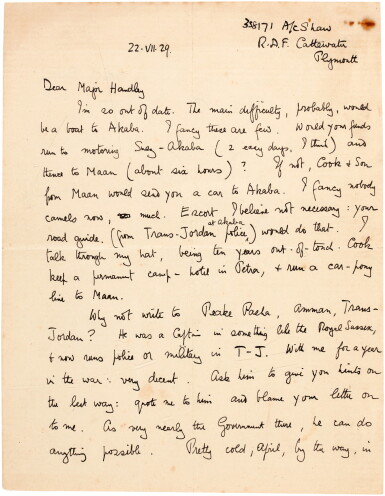 338171 A/c Shaw
R.A.F. Cattewater
Plymouth
22.VII.29.
Dear Major Handley
I'm so out of date. The main difficulty, probably, would
be a boat to Akaba. I fancy these are few. Would your funds
run to motoring Suez-Akaba (2 easy days, I think) and
thence to Maan (about six hours)? If not, Cook & Son
from Maan would send you a car to Akaba. I fancy nobody
camels now, much. Escort I believe not necessary: your
road guide. (from Trans-Jordan police, at akaba) would do that. I
talk through my hat, being ten years out-of-touch. Cook
keep a permanent camp-hotel in Petra, & run a car-pony
line to Maan.
Why not write to Peake Pasha, Amman, Trans-
Jordan? He was a Captain in something like the Royal Sussex,
& now runs police or military in T-J. With me for a year
in the war: very decent. Ask him to give you hints on
the best way: quote me to him and blame your letter on
to me. As very nearly the Government there, he can do
anything possible. Pretty cold, April, by the way, in